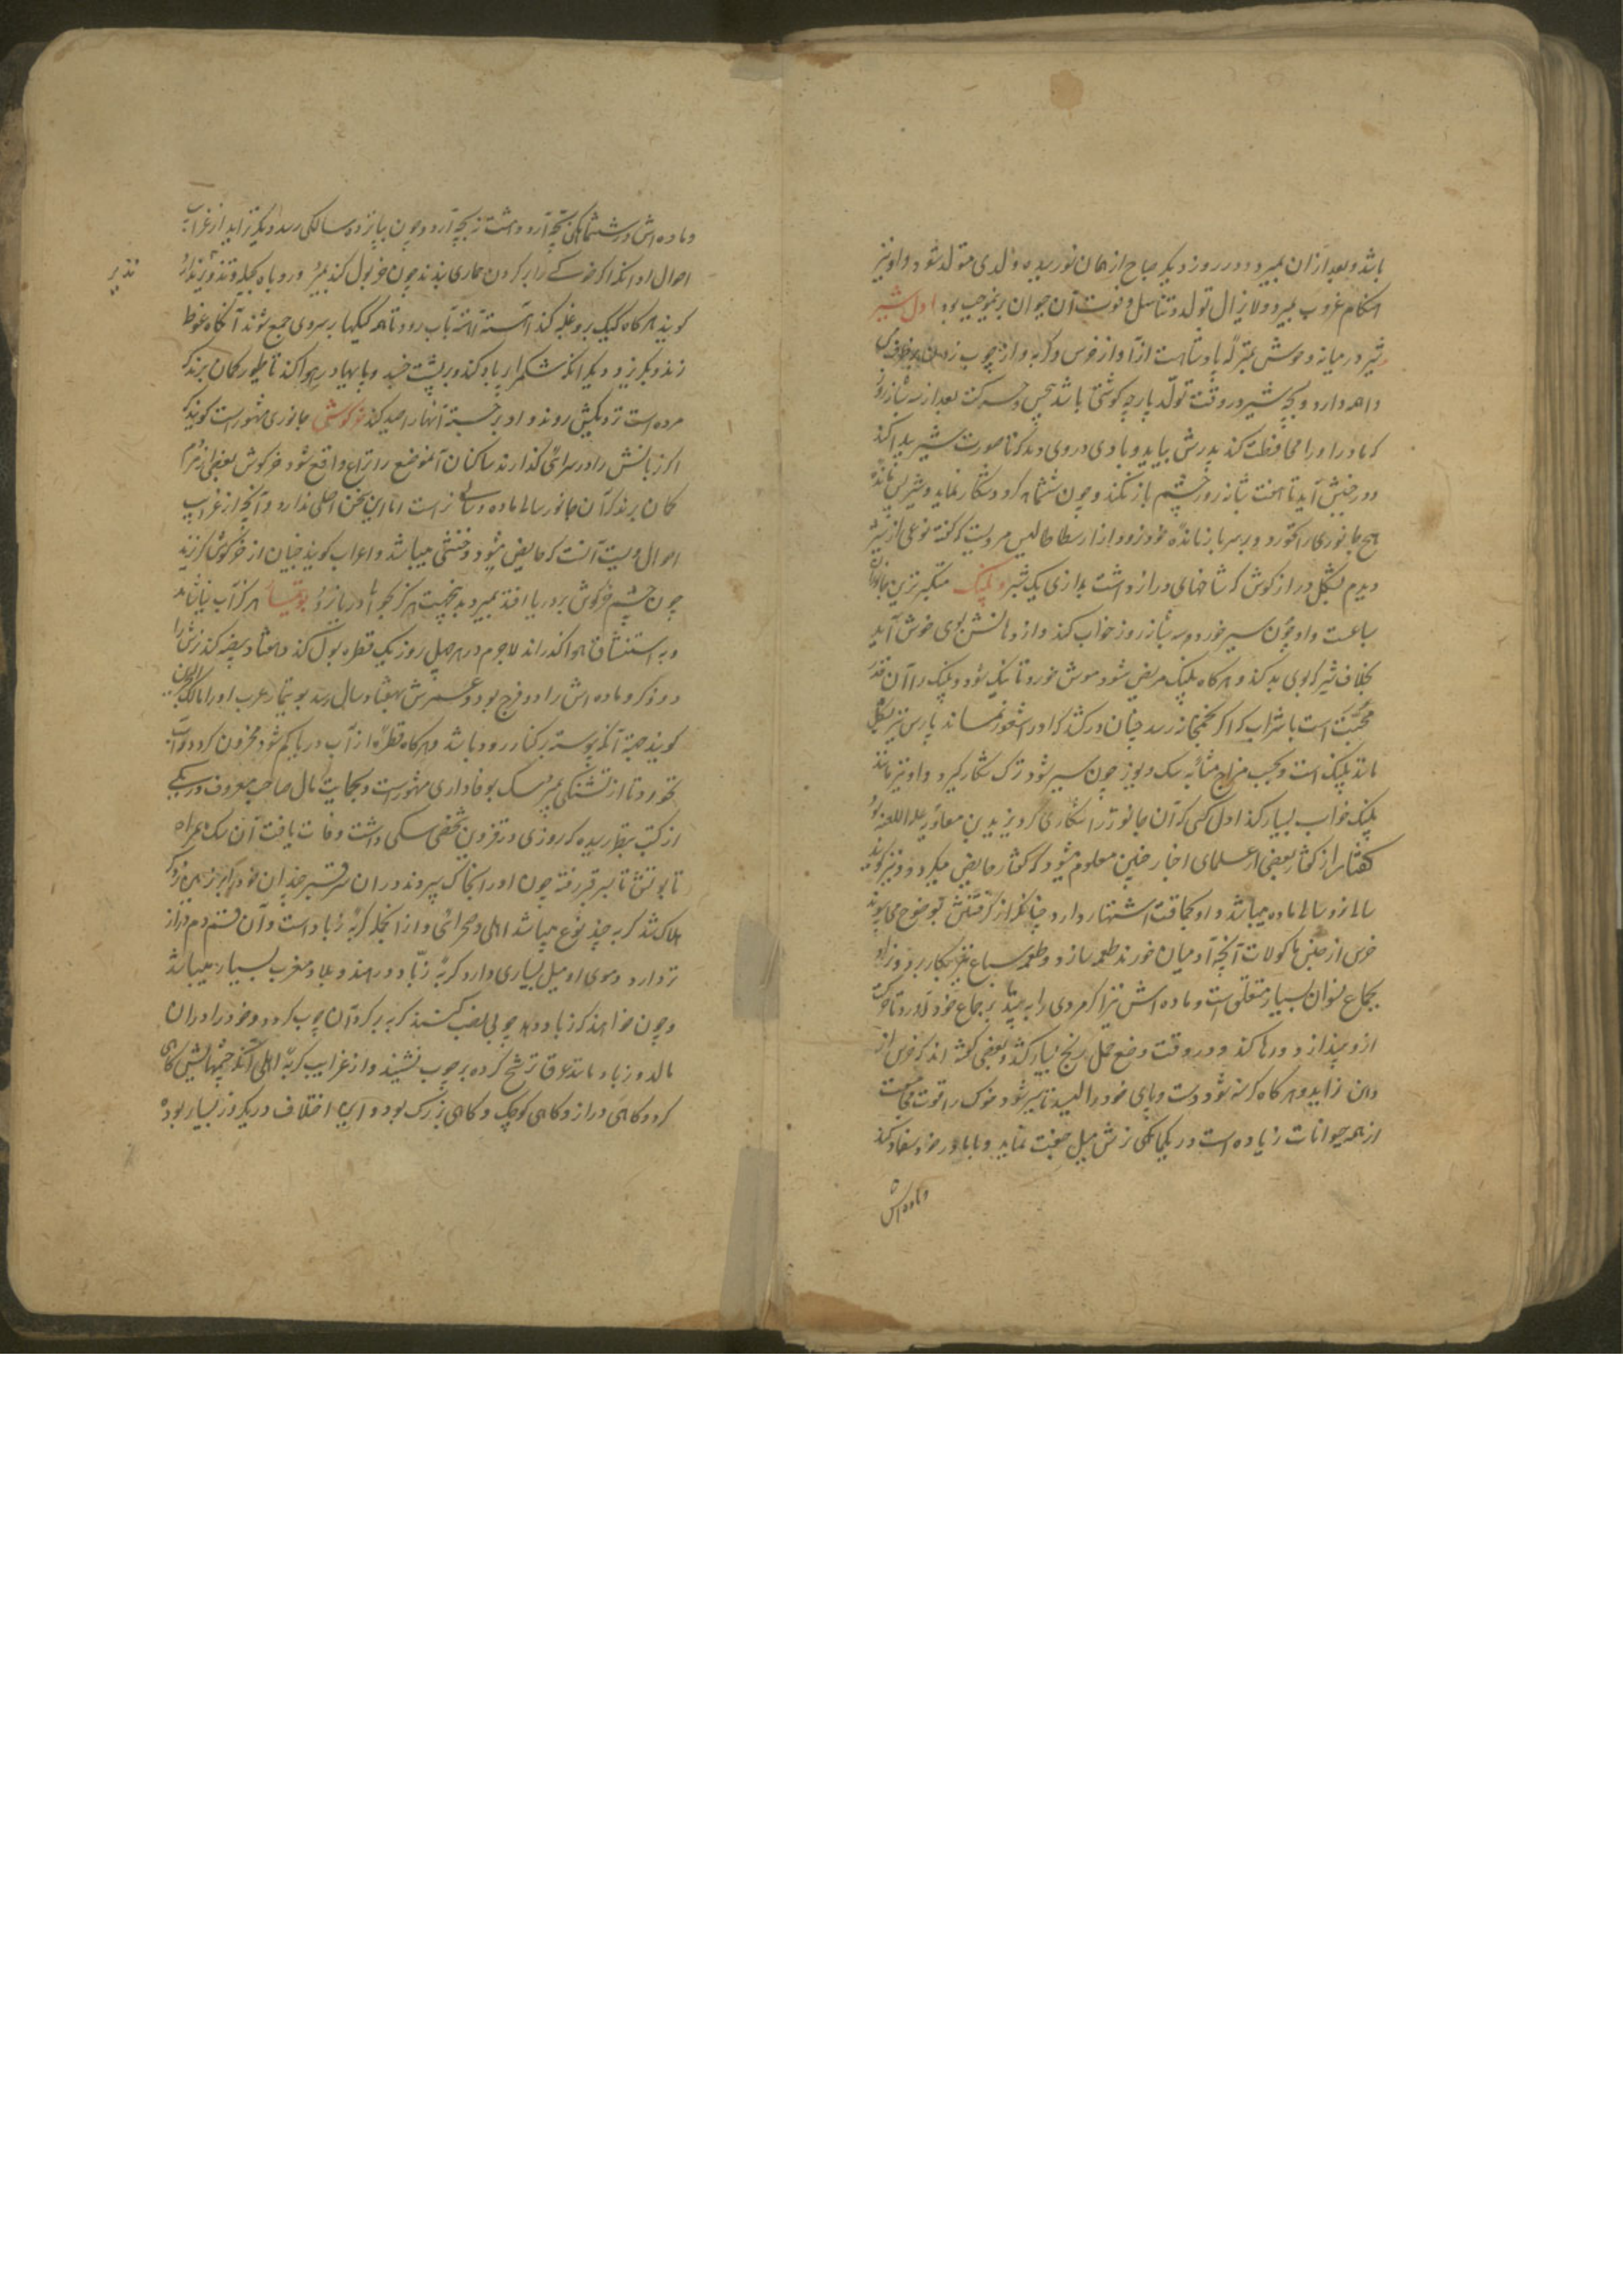 باشد و بعد از ان بمیرد و در روز دیکر صباح از همان نور سیده ولدی متولد شود و او نیز
هنکام غروب بمیرد و لایزال تولد و تناسل و فوت آن حیوان برینموجب بود اول شیر
شیر در میانه وحوش بمنزله پادشاهست از آواز خروس و کربه و از چوب زدن
واهمه دارد و بچه شیر در وقت تولد پارچه کوشتی باشد بیحس و حرکت بعد از سه شبانروز
که مادر او را محافظت کند پدرش بیاید و بادی در وی دمد که تا صورت شیر پیدا کند
و در جنبش آید تا هفت شبانه روز چشم باز نکند و چون ششماهه کردد شکار نماید و شیر پس مانده
هیچ جانوری را نخورد و بر سر باز مانده خود نرود و از ارسطاطالیس مرویست که کفته نوعی از شیر
دیدم بشکل دراز کوش که شاخهای دراز داشت بدرازی یک شبر پلنک متکبر ترین جانوران
سباعست و او چون سیر خورد سه شبانروز خواب کند و از دهانش بوی خوش آید
بخلاف شیر که بوی بد کند و هرکاه پلنک مریض شود موش خورد تا نیک شود و پلنک را آن قدر
محبت است با شراب که اکر بخمخانه رسد چنان درکشد که او را شعور نماند پارس نیز بشکل
مانند پلنک است و بحسب مزاج مشابه سک و یوز چون سیر شود ترک شکار کیرد و او نیز مانند
پلنک خواب بسیار کند اول کسی که آن جانور را شکاری کرد یزید بن معاویه علیه اللعنه بود
کفتار از کفتار بعضی از علمای اخبار چنین معلوم میشود که کفتار حایض میکردد و نیز کویند
سالی نر و سالی ماده میباشد و او بحماقت اشتهار دارد چنانکه از کرفتنش بوضوح می پیوندد
خرس از جنس ماکولات آنچه آدمیان خورند طعمه سازد و طعمه سباع نیز بکار برد و نر او
بجماع نسوان بسیار متعلق است و ماده اش نیز اکر مردی را به بیند بر جماع خود آورد تا حرکت
از و بیندازد و رها کند و در وقت وضع حمل رنج بسیار کشد و بعضی کفته اند که خرس از
دهان زاید و هرکاه کرسنه شود دست و پای خود را لیسد تا سیر شود خوک را قوت مجامعت
از همه حیوانات زیاده است در یکماهکی نرش میل صحبت نماید و با مادر خود سفاد کند
و ماده اش
و ماده اش در ششماهکی بچه آرد و هشت نه بچه آرد و چون بپانزده سالکی رسد دیکر نزاید از غرایب
احوال او آنکه اکر خوکی را بر کردن حماری بندند چون خر بول کند بمیرد روباه بحیله و تذویر
تذویر
کویند هرکاه کیک برو غلبه کند آهسته آهسته بآب رود تا همه کیکها بر سر وی جمع شوند آنکاه غوطه
زند و بکریزد و دیکر آنکه شکم را پر باد کند و بر پشت خسپد و پایها در هوا کند تا طیور کمان برند که
مرده است نزدیکش روند و او برجسته آنها را صید کند خرکوش جانوری مشهور است کویند که
اکر زبانش را در سرائی کذارند ساکنان آنموضع را نزاع واقع شود خرکوش بعضی از مردم
کمان برند که آن جانور سالی ماده و سالی نر است اما این سخن اصلی ندارد و آنچه از غرایب
احوال ویست آنست که حایض میشود و خنثی میباشد و اعراب کویند جنیان از خرکوش کریزند
چون چشم خرکوش بر دریا افتد بمیرد بدینجهت هرکز بجوانب دریا نرود بوتیمار هرکز آب نیاشامد
و به استنشاق هوا کذراند لاجرم در هر چهل روز یک قطره بول کند و هفتاد بیضه کند نرش را
دو ذکر و ماده اش را دو فرج بود و عمرش بهفتاد سال رسد بوتیمار عرب او را مالک الحزین
کویند جهة آنکه پیوسته بر کنار رود باشد و هرکاه قطره از آب دریا کم شود محزون کردد و آب
نخورد تا از تشنکی بمیرد سک بوفاداری مشهور است و بحکایت مال صاحب معروف در یکی
از کتب بنظر رسیده که روزی در قزوین شخصی سکی داشت وفات یافت آن سک همراه
تابوتش تا بسر قبر رفته چون او را بخاک سپردند در ان سر قبر چندان خود را بر زمین زد که
هلاک شد کربه چند نوع میباشد اهلی و صحرائی و از انجمله کربه زباد است و آن قسم دم دراز
تر دارد و موی او میل بسیاری دارد کربه زباد در هند و بلاد مغرب بسیار میباشد
و چون خواهند که زباد دهد چوبی نصب کنند کربه بر کرد آن چوب کردد و خود را در ان
مالد و زباد مانند عرق ترشح کرده بر چوب نشیند و از غرایب کربه اهلی آنکه چشمهایش کاهی
کرد و کاهی دراز و کاهی کوچک و کاهی بزرک بود و این اختلاف در یکروز بسیار بود